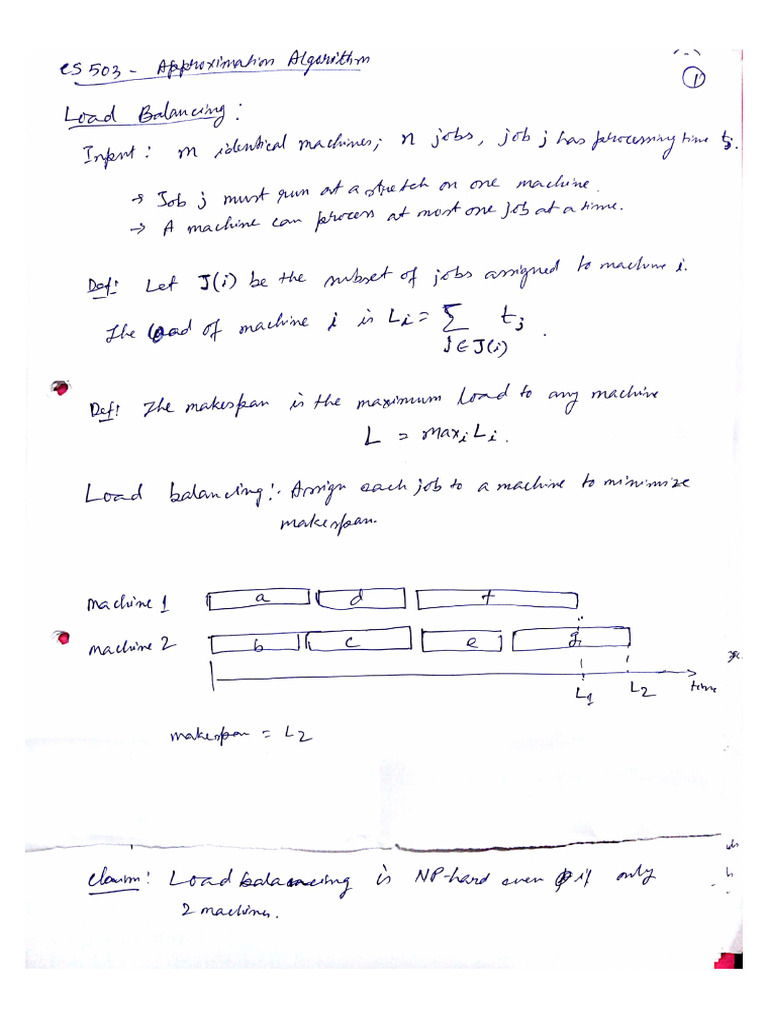 CS 503 - Approximation Algorithm
1
Load Balancing:
Input: m identical machines; n jobs, job j has processing time tj.
→ Job j must run at a stretch on one machine.
→ A machine can process at most one job at a time.
Def: Let J(i) be the subset of jobs assigned to machine i.
The load of machine i is Li = Σ tj .
j ∈ J(i)
Def: The makespan is the maximum load to any machine
L = maxi Li.
Load balancing:- Assign each job to a machine to minimize
makespan.
machine 1 a d f
machine 2 b c e g
L1 L2 time
makespan = L2
claim: Load balancing is NP-hard even if only
2 machines.